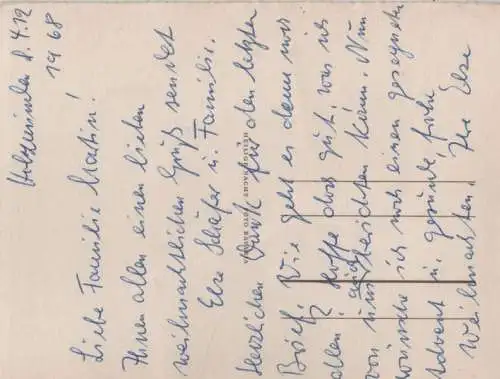 d. 4.12
1968
Liebe Familie Martin!
Ihnen allen einen lieben
weihnachtlichen Gruß sendet
Else Schäfer u. Familie.
Herzlichen Dank für den letzten
Brief. Wie geht es denn mir
allen? Hoffe doch gut, was ich
von auch berichten kann. Nun
wünsche ich noch einen gesegneten
Advent u. gesunde, frohe
Weihnachten. Ihre Else
HEILIGE NACHT
FOTO